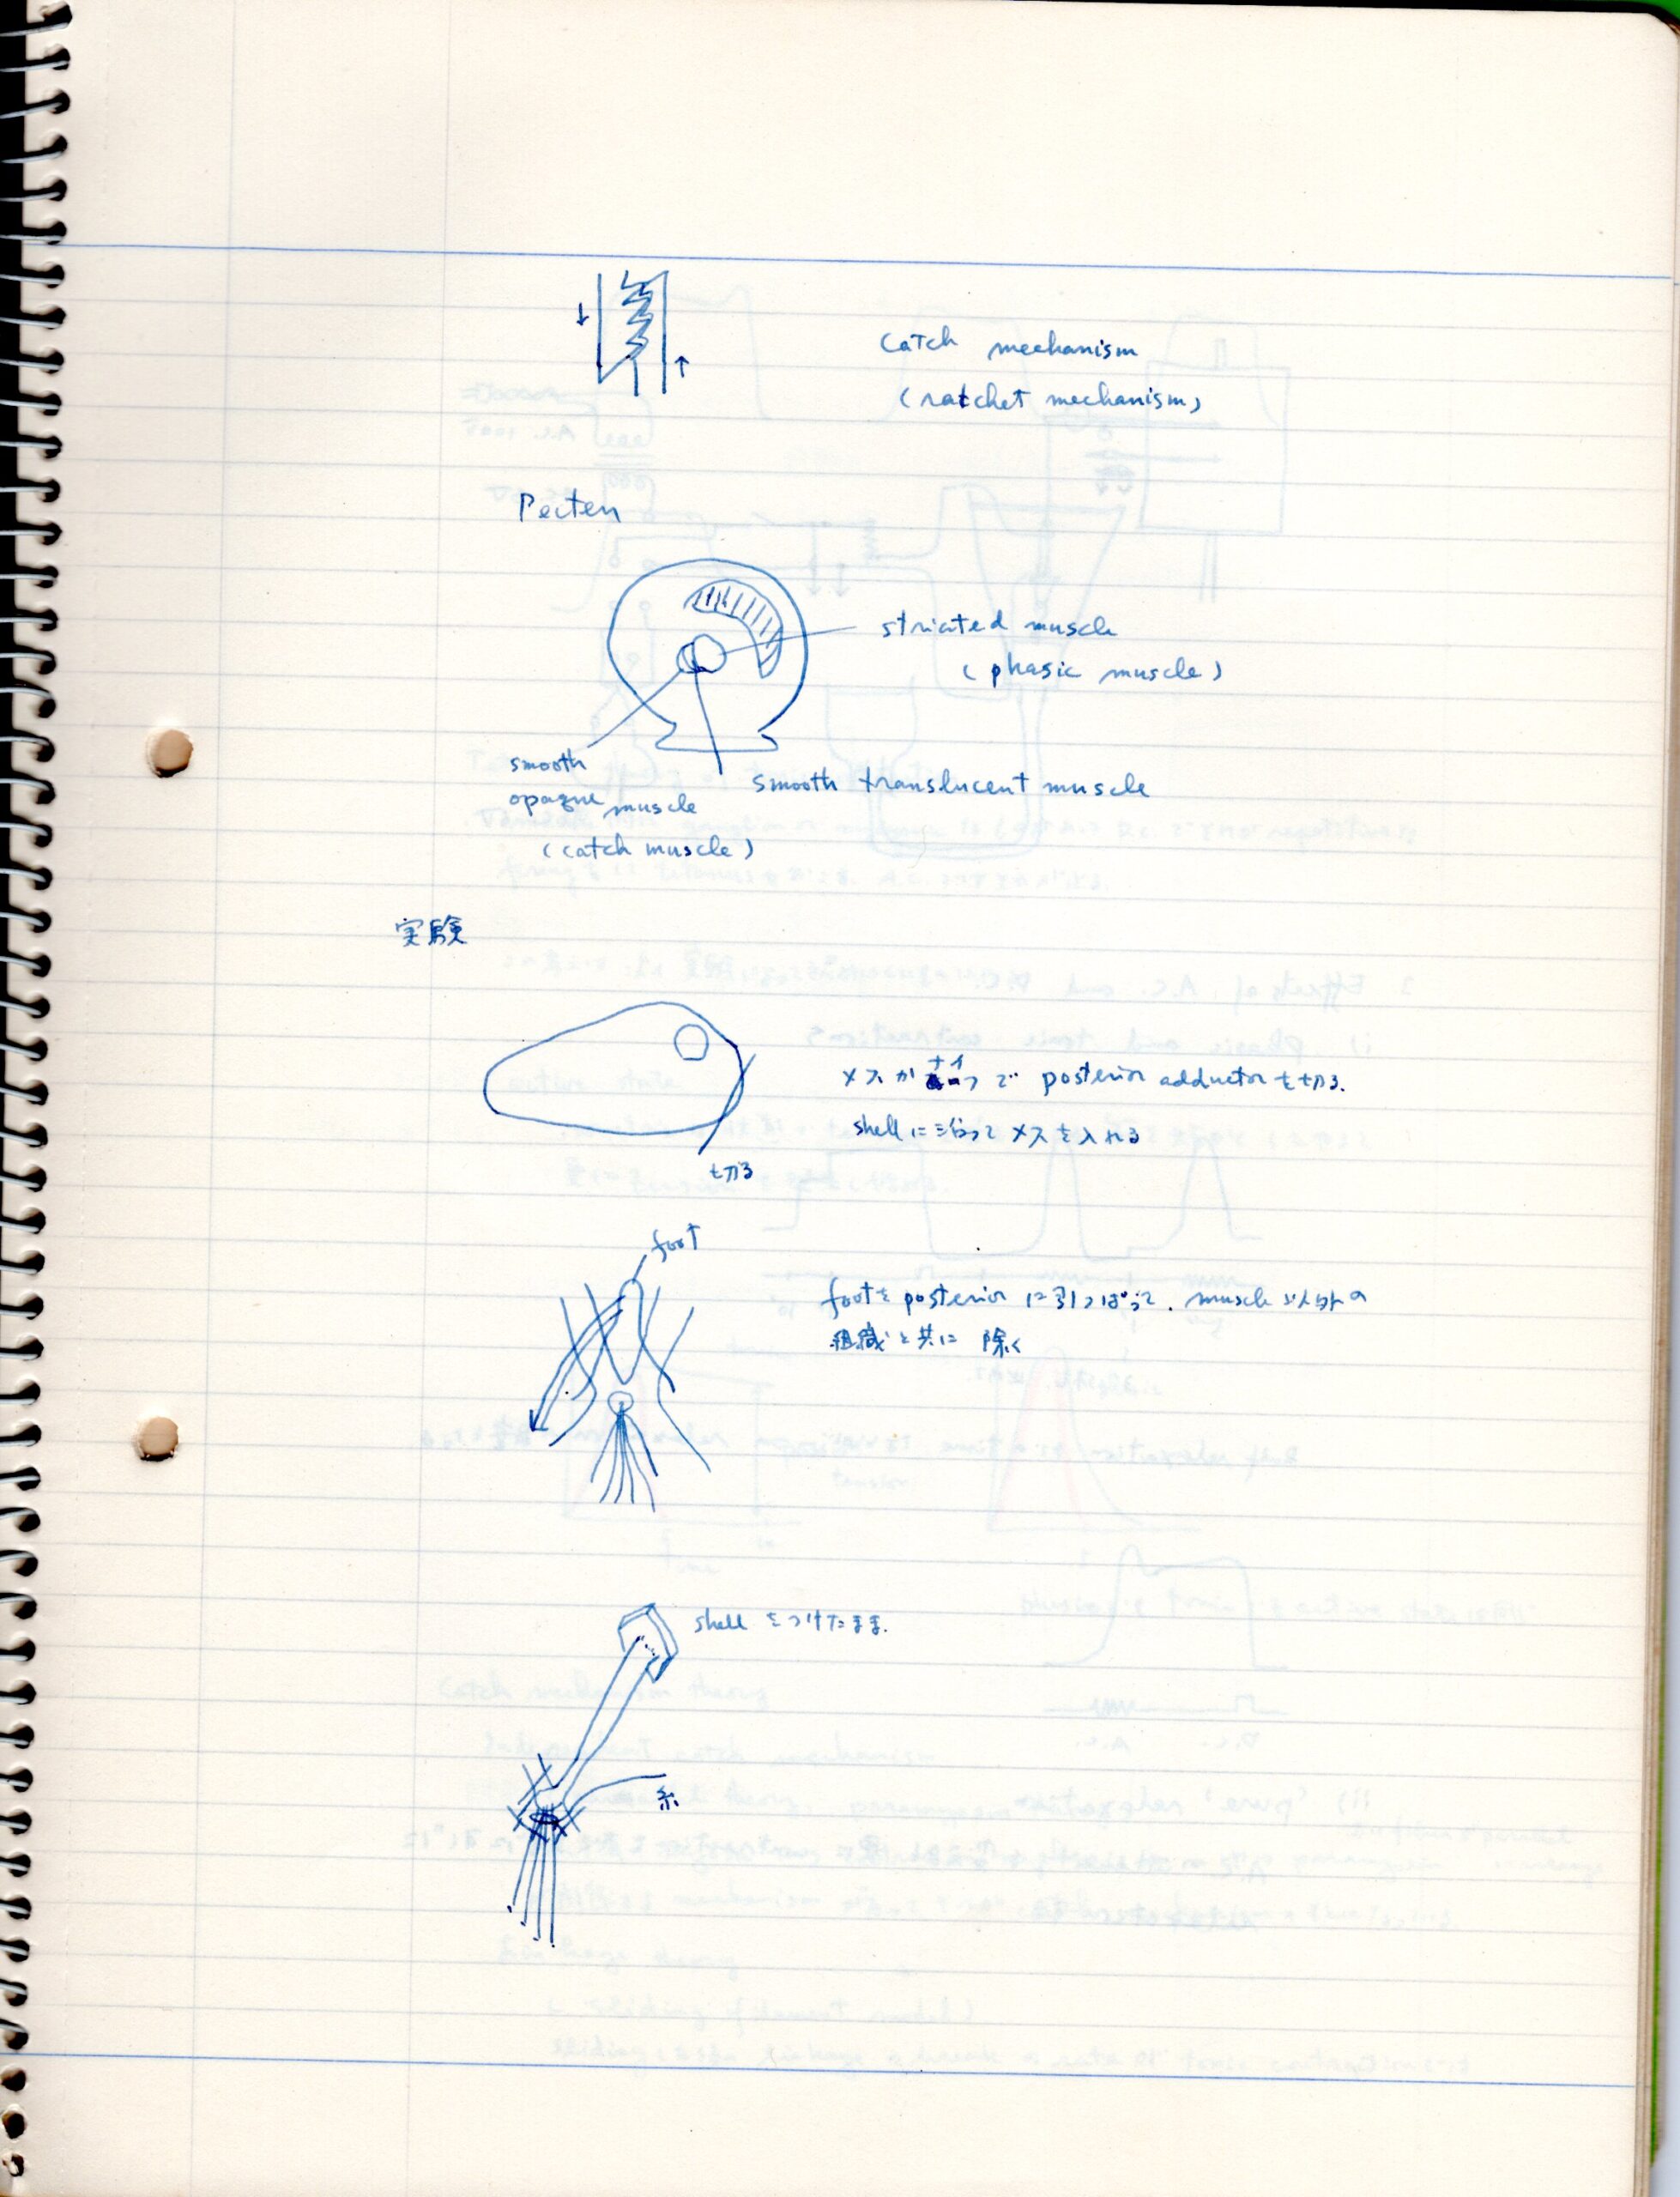 catch mechanism
(ratchet mechanism)
Pecten
striated muscle
(phasic muscle)
smooth
opaque muscle
(catch muscle)
smooth translucent muscle
実験
メスか ナイフで posterior adductor を切る.
shell に沿って メスを入れる
切る
foot
footを posterior に引っぱって. muscle 以外の
組織と共に 除く
shell をつけたまま.
糸